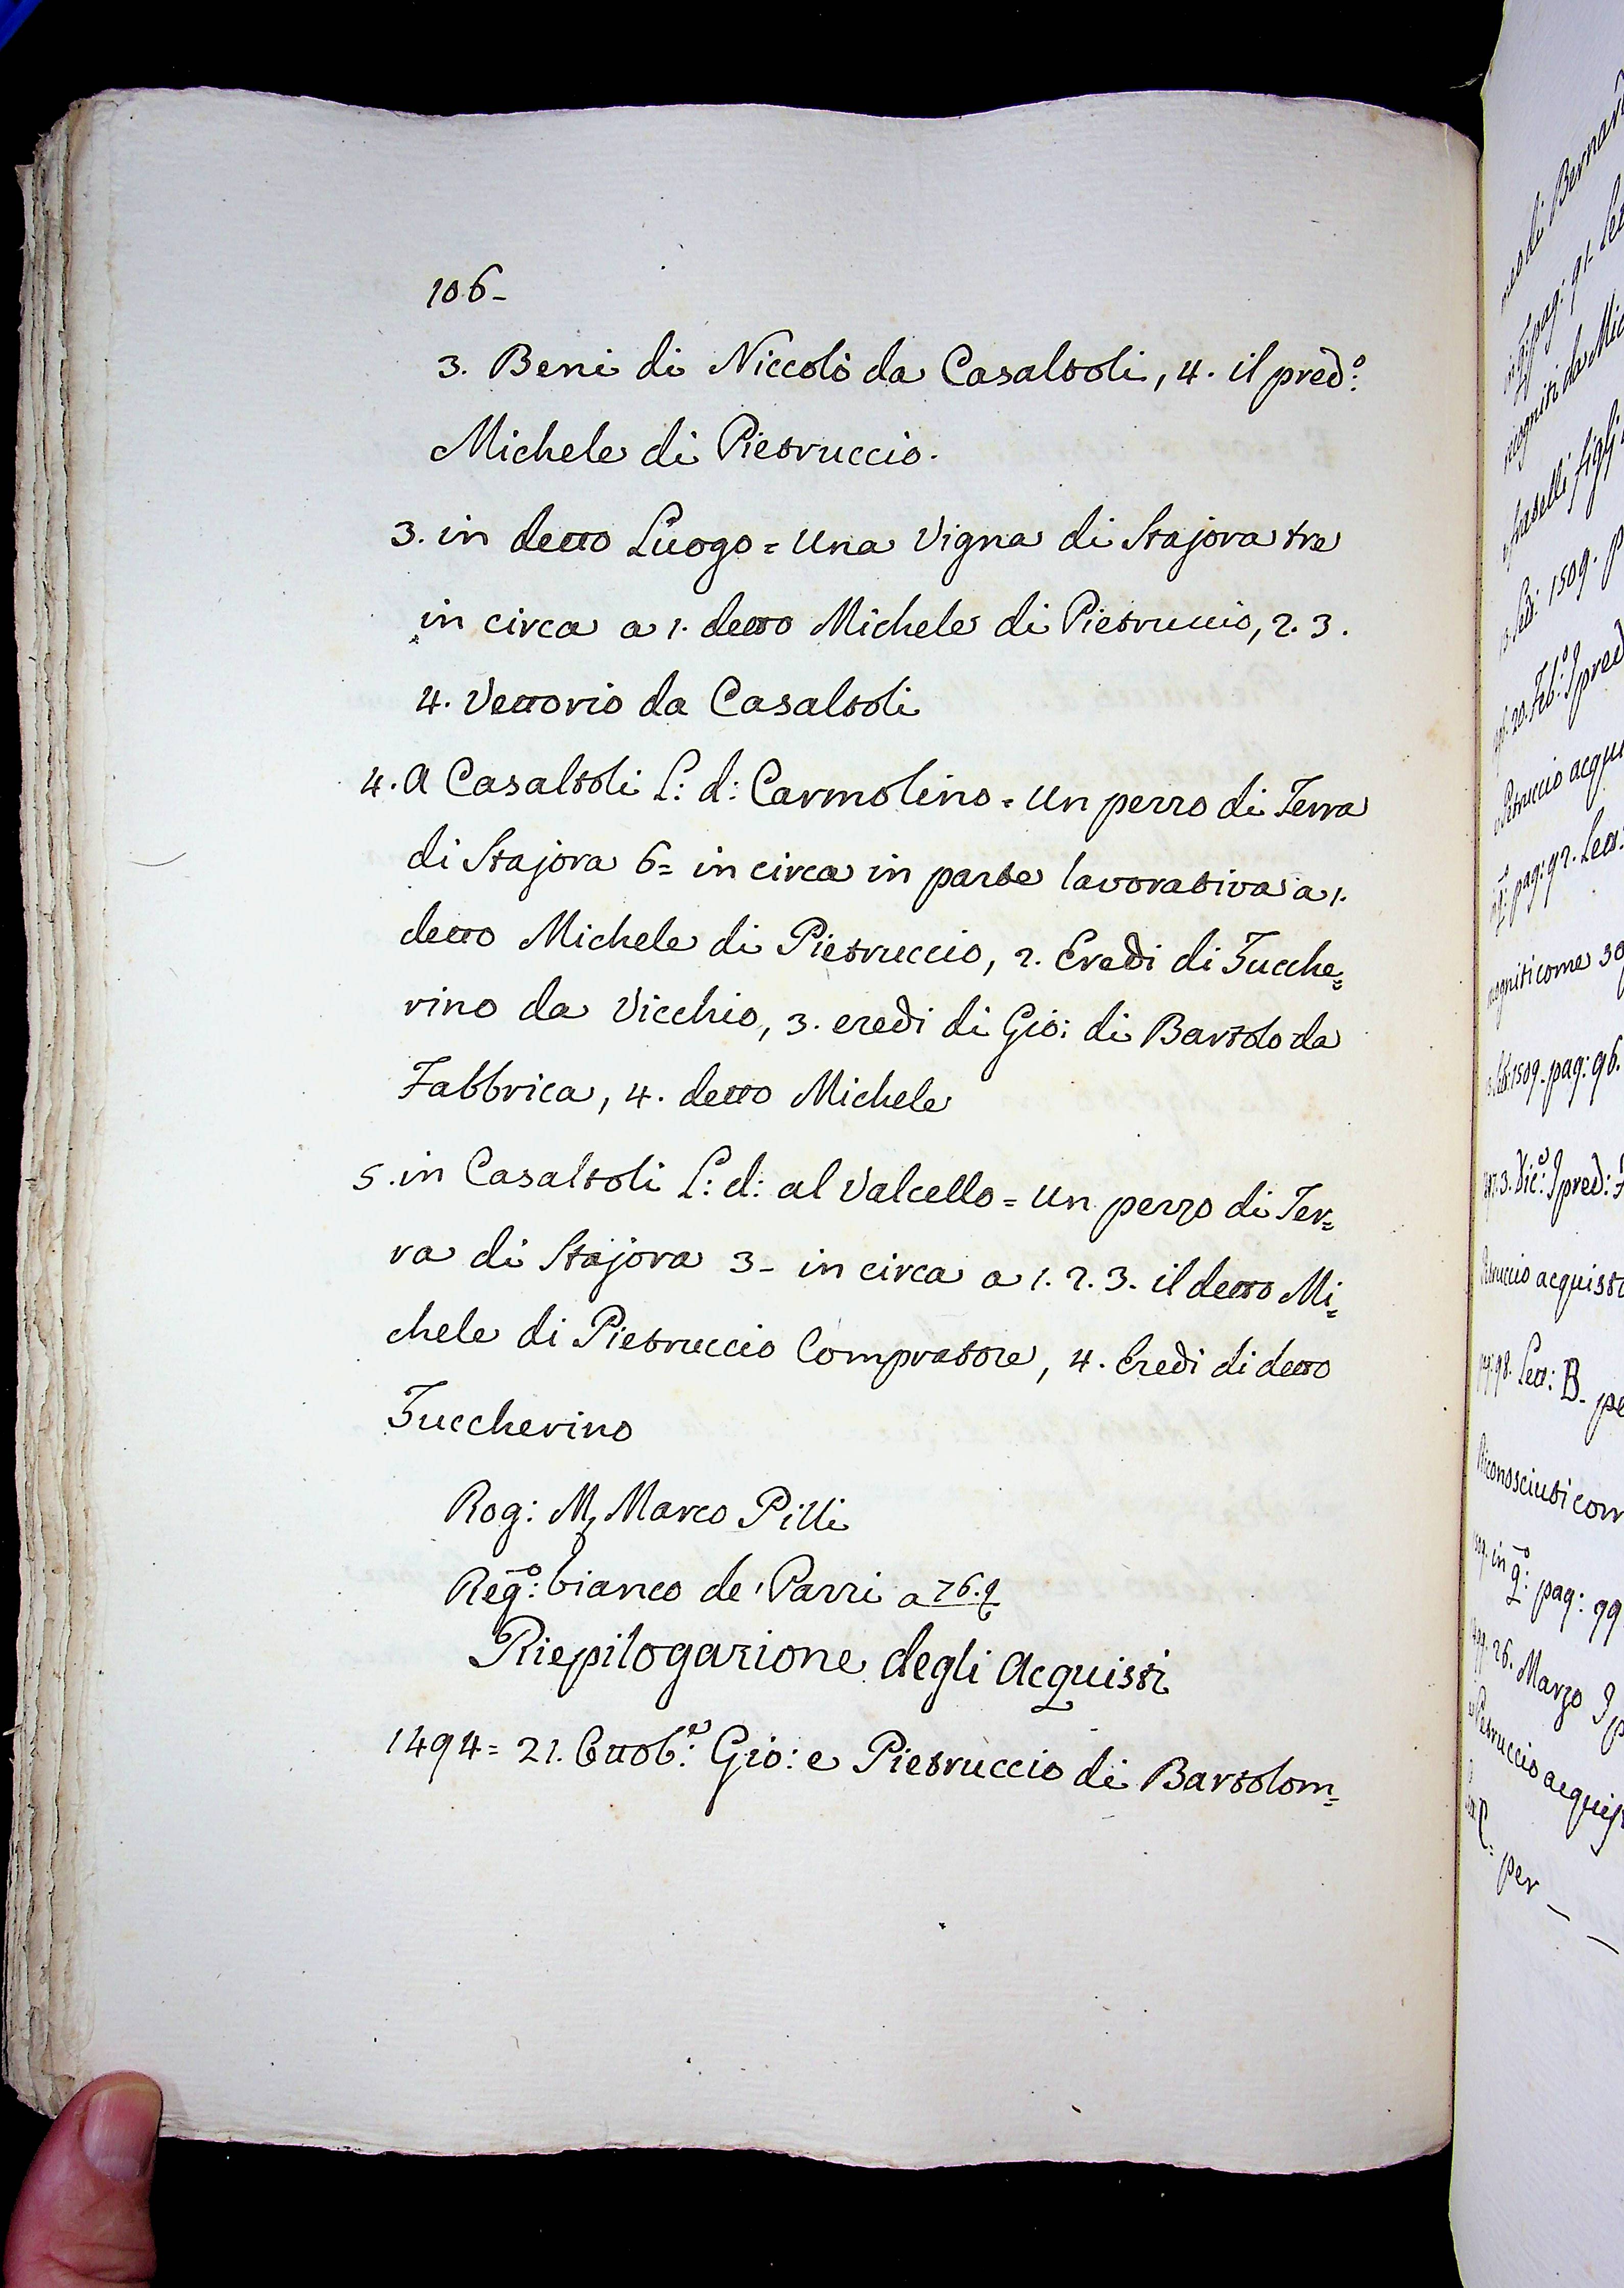 106-
3. Beni di Niccolò da Casaltoli, 4. il pred:º
Michele di Pietruccio.
3. in detto Luogo = Una Vigna di Stajora tre
in circa a 1. detto Michele di Pietruccio, 2. 3.
4. Vettorio da Casaltoli
4. A Casaltoli L: d: Carmolino = Un pezzo di Terra
di Stajora 6= in circa in parte lavorativa a 1.
detto Michele di Pietruccio, 2. Eredi di Zucche=
rino da Vicchio, 3. eredi di Gio: di Bartolo da
Fabbrica, 4. detto Michele
5. in Casaltoli L: d: al Valcello = Un pezzo di Ter=
ra di Stajora 3- in circa a 1. 2. 3. il detto Mi=
chele di Pietruccio Compratore, 4. Eredi di detto
Zuccherino
Rog: M, Marco Pilli
Reg:º bianco de' Pazzi a 76. q
Riepilogazione degli Acquisti
1494= 21. Ottob:e Gio: e Pietruccio di Bartolom=
di Bernar
pag: 91- Le
fratelli figli
1509. p
20. Feb:º I pred
Petruccio acqui
pag: 92. Lett:
come 30
1509. pag: 96.
3. Dic:e I pred:
Petruccio acquist
98. Lett: B- pe
Riconosciuti com
in q:º pag: 99
26. Marzo I p
Petruccio acquis
per —